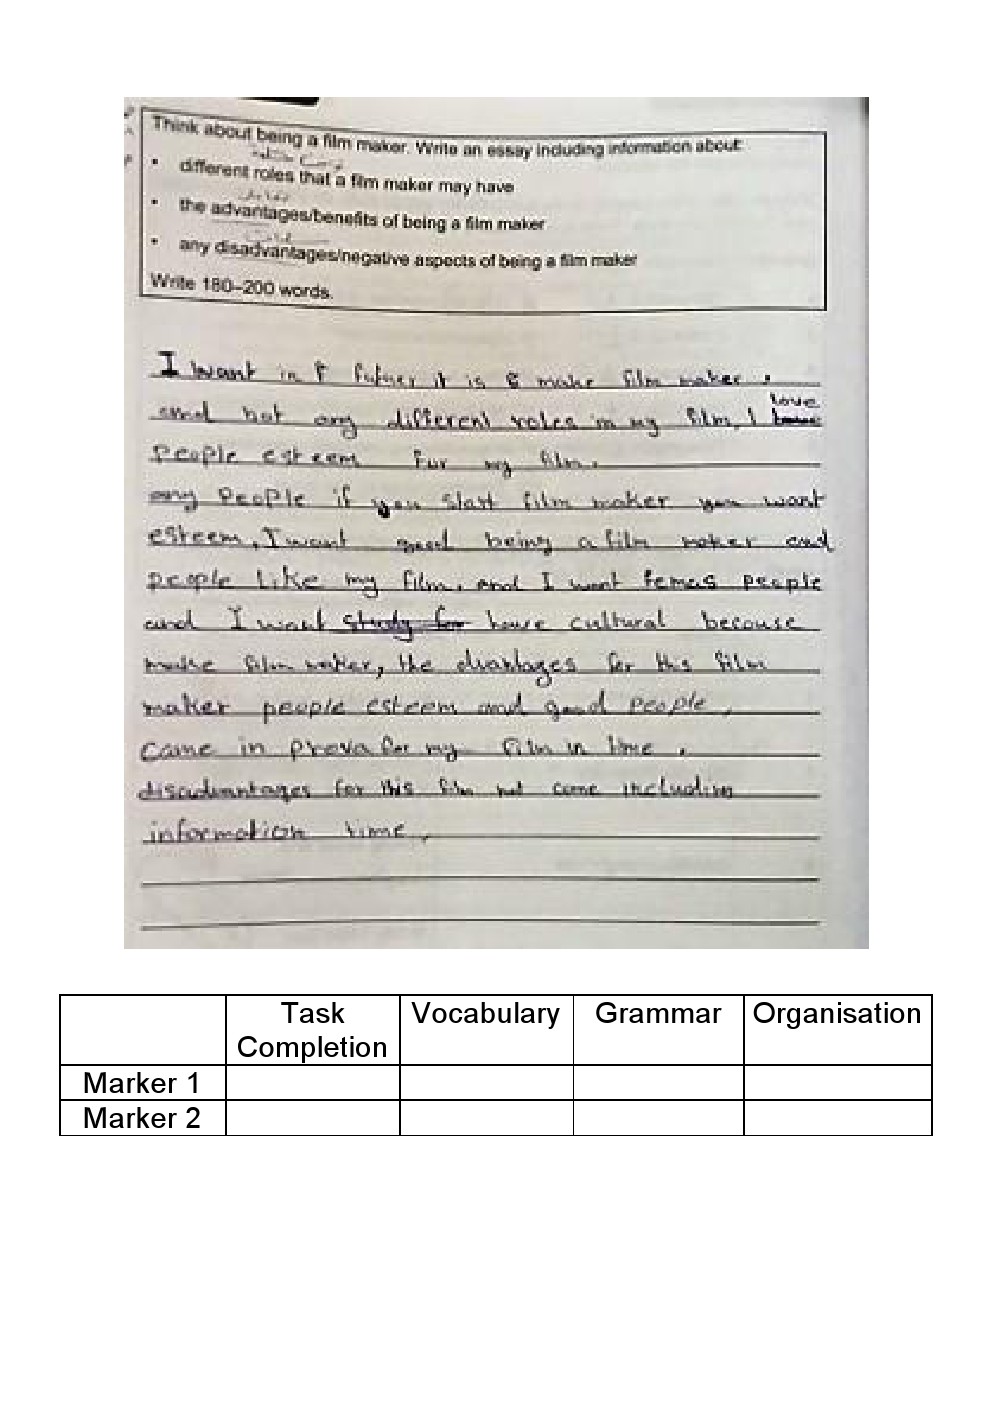 Think about being a film maker. Write an essay including information about:
• different roles that a film maker may have
• the advantages/benefits of being a film maker
• any disadvantages/negative aspects of being a film maker
Write 180–200 words.
I want in futuer it is make film maker.
and not any different roles in my film, I love
people esteem for my film.
any people if you start film maker you want
esteem, I want good being a film maker and
people like my film. and I want femas people
and I want study for have cultural because
make film maker, the dvantages for this film
maker people esteem and good people,
came in prova for my film in time.
disadvantages for this film not come including
information time,
Task Completion
Vocabulary
Grammar
Organisation
Marker 1
Marker 2